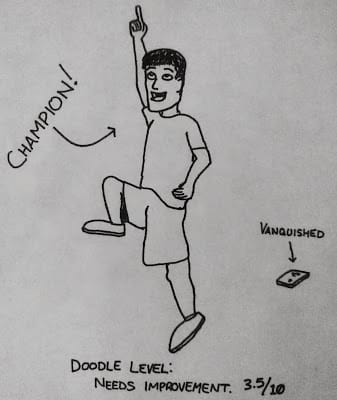 CHAMPION!
VANQUISHED
DOODLE LEVEL:
NEEDS IMPROVEMENT. 3.5/10